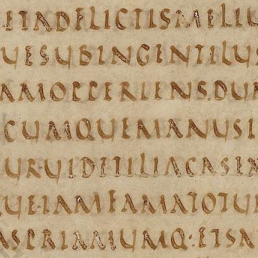 ETADFLICTISMELIU
UESUBINGENTILUS
AMOPPERIENS.DUM
CUMQUEMANUSI
URUIDETILIACASEX
UEIAMFAMATOTU
ASPRIAMUMQ:ETSA